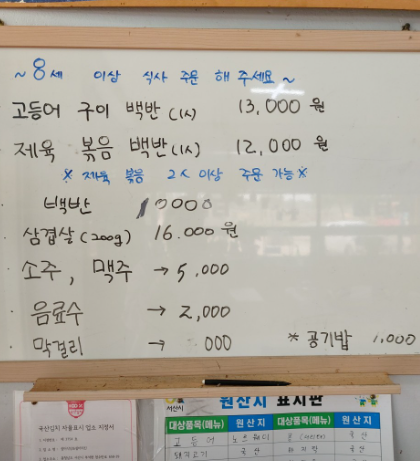 ~ 8세 이상 식사 주문 해 주세요 ~
고등어 구이 백반(1人) 13,000 원
제육 볶음 백반(1人) 12,000 원
※ 제육 볶음 2人 이상 주문 가능 ※
백반 10000
삼겹살(200g) 16.000 원
· 소주, 맥주 → 5,000
· 음료수 → 2,000
· 막걸리 → 000
* 공기밥 1,000
국산김치 자율표시 업소 지정서
서산시 원산지 표시판
대상품목(메뉴) 원산지 대상품목(메뉴) 원산지
고등어 노르웨이 국산
돼지고기 국산 국산